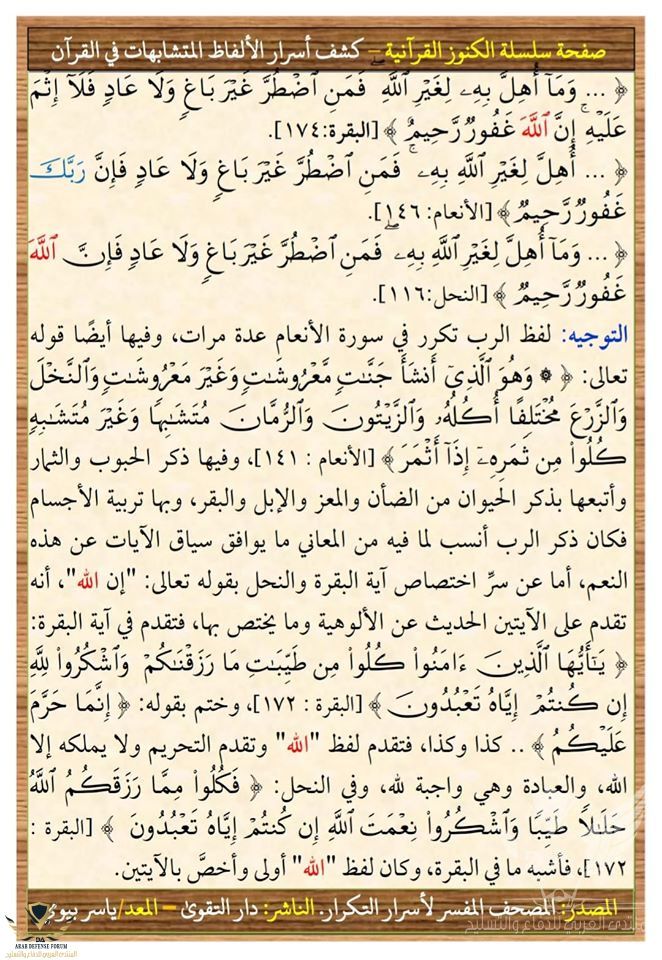 صفحة سلسلة الكنوز القرآنية – كشف أسرار الألفاظ المتشابهات في القرآن
﴿ ... وَمَآ أُهِلَّ بِهِۦ لِغَيْرِ ٱللَّهِۖ فَمَنِ ٱضْطُرَّ غَيْرَ بَاغٍ وَلَا عَادٍ فَلَآ إِثْمَ
عَلَيْهِۚ إِنَّ ٱللَّهَ غَفُورٌ رَّحِيمٌ ﴾ [البقرة:١٧٤].
﴿ ... أُهِلَّ لِغَيْرِ ٱللَّهِ بِهِۦۚ فَمَنِ ٱضْطُرَّ غَيْرَ بَاغٍ وَلَا عَادٍ فَإِنَّ رَبَّكَ
غَفُورٌ رَّحِيمٌ ﴾ [الأنعام: ١٤٦].
﴿ ... وَمَآ أُهِلَّ لِغَيْرِ ٱللَّهِ بِهِۦۖ فَمَنِ ٱضْطُرَّ غَيْرَ بَاغٍ وَلَا عَادٍ فَإِنَّ ٱللَّهَ
غَفُورٌ رَّحِيمٌ ﴾ [النحل:١١٦].
التوجيه: لفظ الرب تكرر في سورة الأنعام عدة مرات، وفيها أيضًا قوله
تعالى: ﴿ ۞ وَهُوَ ٱلَّذِىٓ أَنشَأَ جَنَّٰتٍ مَّعْرُوشَٰتٍ وَغَيْرَ مَعْرُوشَٰتٍ وَٱلنَّخْلَ
وَٱلزَّرْعَ مُخْتَلِفًا أُكُلُهُۥ وَٱلزَّيْتُونَ وَٱلرُّمَّانَ مُتَشَٰبِهًا وَغَيْرَ مُتَشَٰبِهٍ
كُلُوا۟ مِن ثَمَرِهِۦٓ إِذَآ أَثْمَرَ ﴾ [الأنعام : ١٤١]، وفيها ذكر الحبوب والثمار
وأتبعها بذكر الحيوان من الضأن والمعز والإبل والبقر، وبها تربية الأجسام
فكان ذكر الرب أنسب لما فيه من المعاني ما يوافق سياق الآيات عن هذه
النعم، أما عن سرِّ اختصاص آية البقرة والنحل بقوله تعالى: "إن الله"، أنه
تقدم على الآيتين الحديث عن الألوهية وما يختص بها، فتقدم في آية البقرة:
﴿ يَٰٓأَيُّهَا ٱلَّذِينَ ءَامَنُوا۟ كُلُوا۟ مِن طَيِّبَٰتِ مَا رَزَقْنَٰكُمْ وَٱشْكُرُوا۟ لِلَّهِ
إِن كُنتُمْ إِيَّاهُ تَعْبُدُونَ ﴾ [البقرة : ١٧٢]، وختم بقوله: ﴿ إِنَّمَا حَرَّمَ
عَلَيْكُمُ ﴾ .. كذا وكذا، فتقدم لفظ "الله" وتقدم التحريم ولا يملكه إلا
الله، والعبادة وهي واجبة لله، وفي النحل: ﴿ فَكُلُوا۟ مِمَّا رَزَقَكُمُ ٱللَّهُ
حَلَٰلًا طَيِّبًا وَٱشْكُرُوا۟ نِعْمَتَ ٱللَّهِ إِن كُنتُمْ إِيَّاهُ تَعْبُدُونَ ﴾ [البقرة :
١٧٢]، فأشبه ما في البقرة، وكان لفظ "الله" أولى وأخصَّ بالآيتين.
المصدر: المصحف المفسر لأسرار التكرار. الناشر: دار التقوىٰ – المعد/ياسر بيومي
ARAB DEFENSE FORUM
المنتدى العربي للدفاع والتسليح